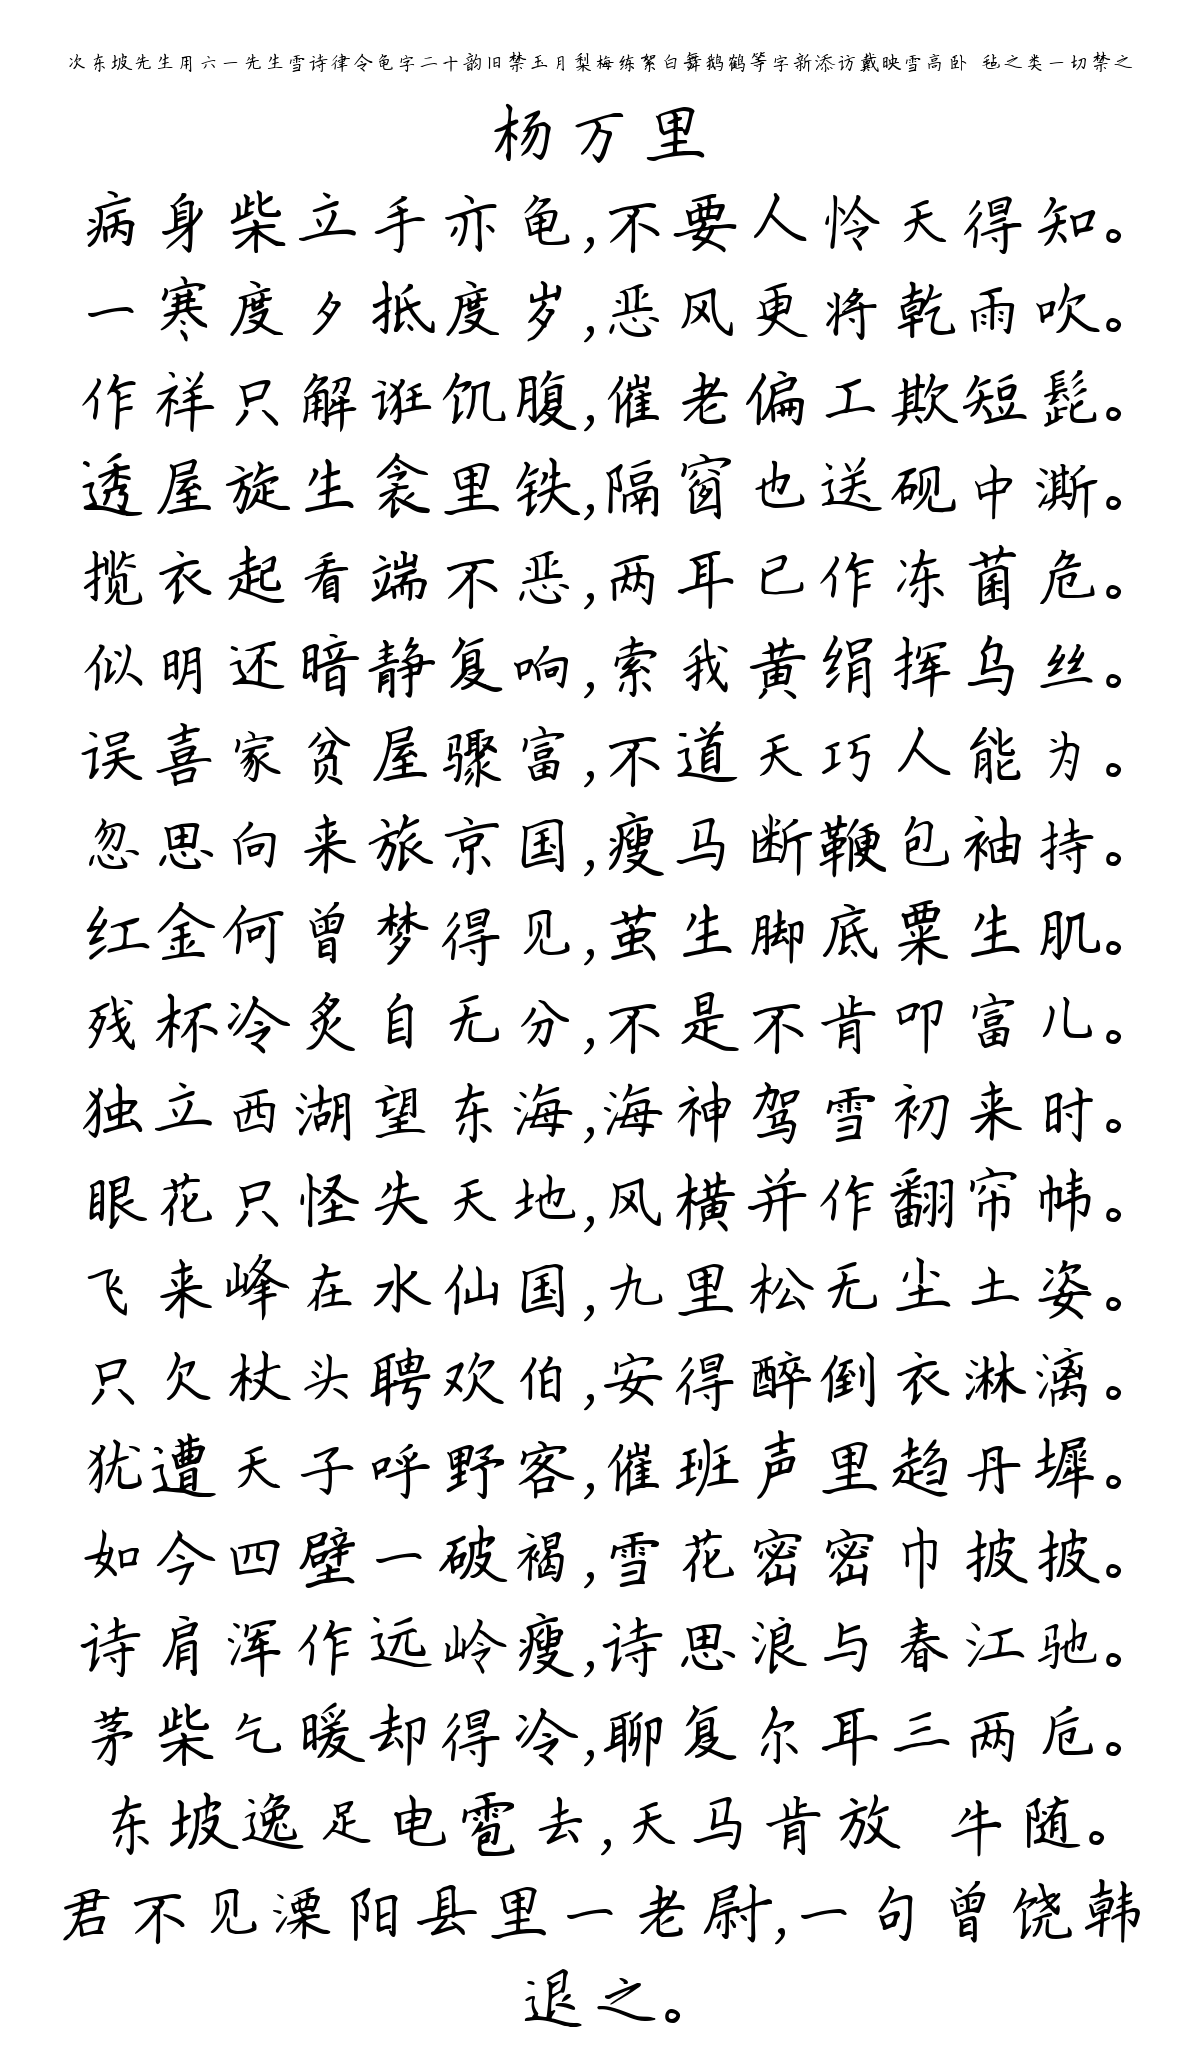 次东坡先生用六一先生雪诗律令龟字二十韵旧禁玉月梨梅练絮白舞鹅鹤等字新添访戴映雪高卧 毡之类一切禁之
杨万里
病身柴立手亦龟,不要人怜天得知。
一寒度夕抵度岁,恶风更将乾雨吹。
作祥只解诳饥腹,催老偏工欺短髭。
透屋旋生衾里铁,隔窗也送砚中澌。
揽衣起看端不恶,两耳已作冻菌危。
似明还暗静复响,索我黄绢挥乌丝。
误喜家贫屋骤富,不道天巧人能为。
忽思向来旅京国,瘦马断鞭包袖持。
红金何曾梦得见,茧生脚底粟生肌。
残杯冷炙自无分,不是不肯叩富儿。
独立西湖望东海,海神驾雪初来时。
眼花只怪失天地,风横并作翻帘帏。
飞来峰在水仙国,九里松无尘土姿。
只欠杖头聘欢伯,安得醉倒衣淋漓。
犹遭天子呼野客,催班声里趋丹墀。
如今四壁一破褐,雪花密密巾披披。
诗肩浑作远岭瘦,诗思浪与春江驰。
茅柴乞暖却得冷,聊复尔耳三两卮。
东坡逸足电雹去,天马肯放 牛随。
君不见溧阳县里一老尉,一句曾饶韩
退之。